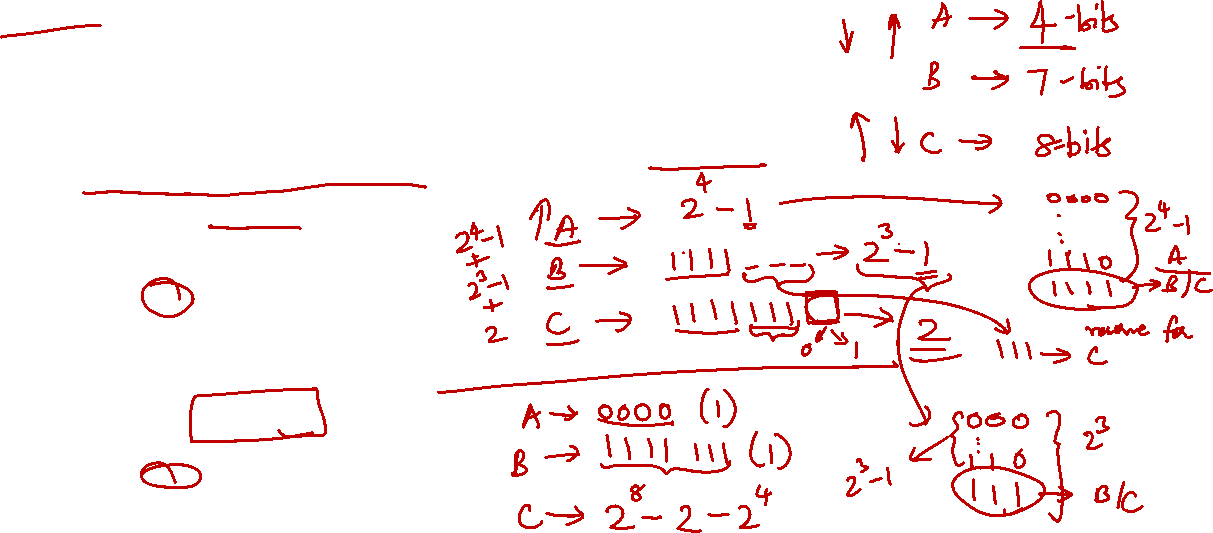 A → 4-bits
B → 7-bits
C → 8-bits
A → 2^4 - 1
B → 1111 --- → 2^3 - 1
C → 1111 111 → 2
0 1
2^4-1
+
2^3-1
+
2
0000
1110
1111 → B/C
2^4-1
A
reserve for
111 → C
A → 0000 (1)
B → 1111 111 (1)
C → 2^8 - 2 - 2^4
000
110
111 → B/C
2^3
2^3-1